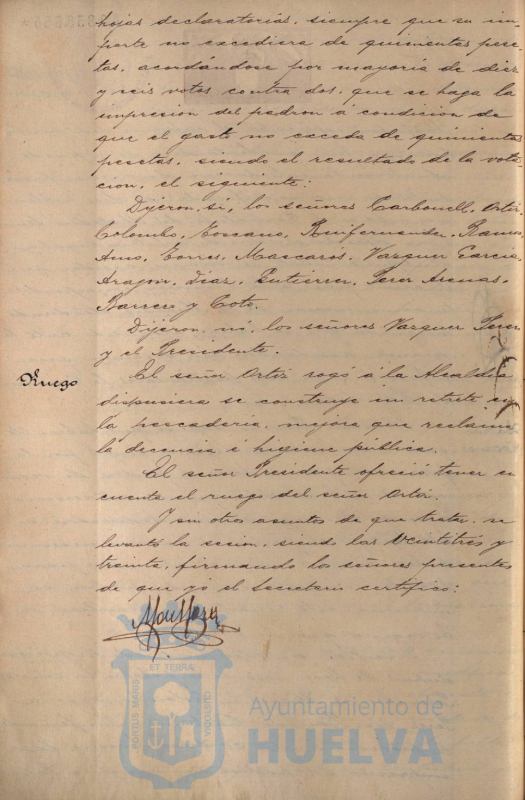 hojas declaratorias, siempre que su im-
porte no excediera de quinientas pese-
tas, acordándose por mayoría de diez
y seis votos contra dos, que se haga la
impresion del padron á condicion de
que el gasto no exceda de quinientas
pesetas, siendo el resultado de la vota-
cion, el siguiente:
Dijeron, sí, los señores Carbonell, Ortiz,
Colombo, Toscano, Ruifernandez, Ramos,
Amo, Torres, Mascarós, Vazquez Garcia,
Aragon, Diaz, Gutierrez, Perez Arenas,
Barrero y Coto.
Dijeron, nó, los señores Vazquez Perez
y el Presidente.
Ruego
El señor Ortiz rogó á la Alcaldia
dispusiera se construye un retrete en
la pescaderia, mejora que reclama
la decencia é higiene pública.
El señor Presidente ofreció tener en
cuenta el ruego del señor Ortiz.
Y sin otros asuntos de que tratar, se
levantó la sesion, siendo las veintitres y
treinta, firmando los señores presentes
de que yó el Secretario certifico:
PORTUS MARIS ET TERRA CUSTODIA
Ayuntamiento de
HUELVA